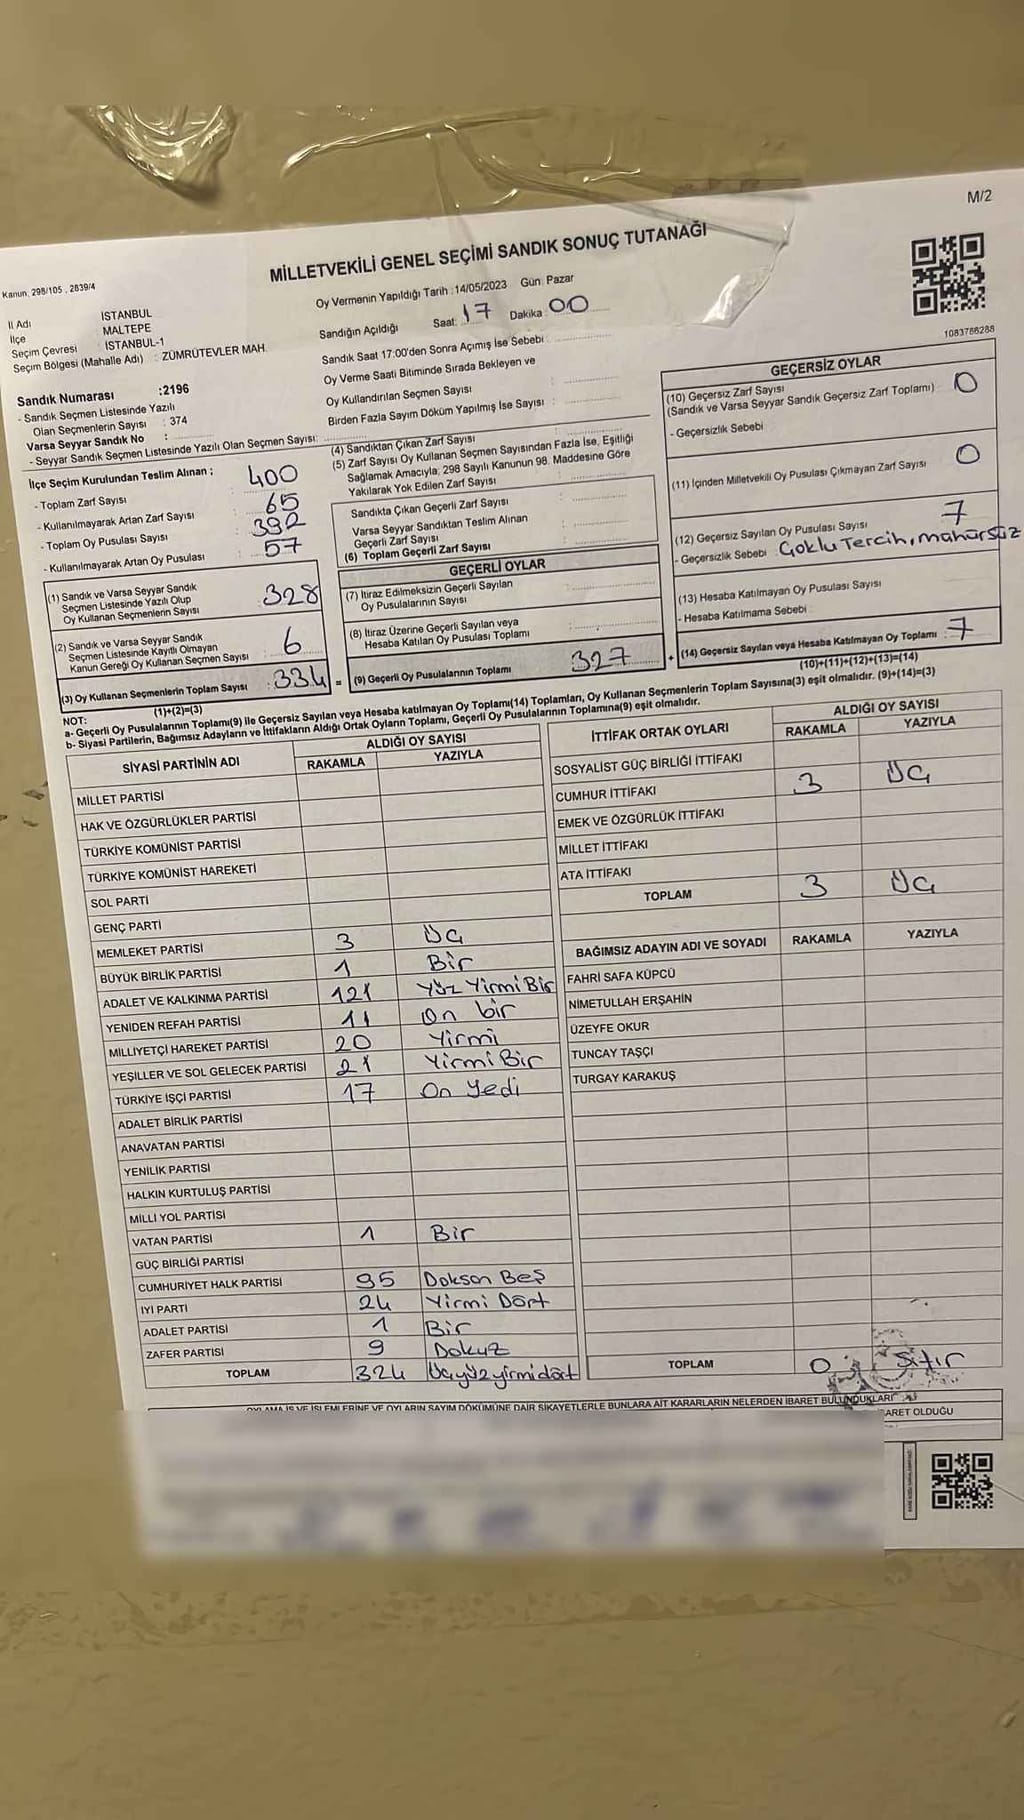 M/2
MİLLETVEKİLİ GENEL SEÇİMİ SANDIK SONUÇ TUTANAĞI
Kanun: 298/105 , 2839/4
Oy Vermenin Yapıldığı Tarih : 14/05/2023 Gün: Pazar
İl Adı : İSTANBUL
İlçe : MALTEPE
Seçim Çevresi : İSTANBUL-1
Seçim Bölgesi (Mahalle Adı) : ZÜMRÜTEVLER MAH.
Sandığın Açıldığı Saat: 17 Dakika: 00
Sandık Saat 17:00'den Sonra Açımış İse Sebebi :
Oy Verme Saati Bitiminde Sırada Bekleyen ve
Oy Kullandırılan Seçmen Sayısı :
Birden Fazla Sayım Döküm Yapılmış İse Sayısı :
1083786288
Sandık Numarası :2196
- Sandık Seçmen Listesinde Yazılı
Olan Seçmenlerin Sayısı : 374
Varsa Seyyar Sandık No :
- Seyyar Sandık Seçmen Listesinde Yazılı Olan Seçmen Sayısı:
İlçe Seçim Kurulundan Teslim Alınan ;
- Toplam Zarf Sayısı : 400
- Kullanılmayarak Artan Zarf Sayısı : 65
- Toplam Oy Pusulası Sayısı : 392
- Kullanılmayarak Artan Oy Pusulası : 57
(1) Sandık ve Varsa Seyyar Sandık
Seçmen Listesinde Yazılı Olup
Oy Kullanan Seçmenlerin Sayısı : 328
(2) Sandık ve Varsa Seyyar Sandık
Seçmen Listesinde Kayıtlı Olmayan
Kanun Gereği Oy Kullanan Seçmen Sayısı : 6
(3) Oy Kullanan Seçmenlerin Toplam Sayısı : 334 =
(1)+(2)=(3)
(4) Sandıktan Çıkan Zarf Sayısı :
(5) Zarf Sayısı Oy Kullanan Seçmen Sayısından Fazla İse, Eşitliği
Sağlamak Amacıyla, 298 Sayılı Kanunun 98. Maddesine Göre
Yakılarak Yok Edilen Zarf Sayısı :
Sandıkta Çıkan Geçerli Zarf Sayısı :
Varsa Seyyar Sandıktan Teslim Alınan
Geçerli Zarf Sayısı :
(6) Toplam Geçerli Zarf Sayısı :
GEÇERLİ OYLAR
(7) İtiraz Edilmeksizin Geçerli Sayılan
Oy Pusulalarının Sayısı :
(8) İtiraz Üzerine Geçerli Sayılan veya
Hesaba Katılan Oy Pusulası Toplamı :
(9) Geçerli Oy Pusulalarının Toplamı 327 +
GEÇERSİZ OYLAR
(10) Geçersiz Zarf Sayısı
(Sandık ve Varsa Seyyar Sandık Geçersiz Zarf Toplamı) : 0
- Geçersizlik Sebebi
(11) İçinden Milletvekili Oy Pusulası Çıkmayan Zarf Sayısı 0
(12) Geçersiz Sayılan Oy Pusulası Sayısı 7
- Geçersizlik Sebebi Çoklu Tercih, mühürsüz
(13) Hesaba Katılmayan Oy Pusulası Sayısı
- Hesaba Katılmama Sebebi
(14) Geçersiz Sayılan veya Hesaba Katılmayan Oy Toplamı : 7
(10)+(11)+(12)+(13)=(14)
NOT:
a- Geçerli Oy Pusulalarının Toplamı(9) ile Geçersiz Sayılan veya Hesaba katılmayan Oy Toplamı(14) Toplamları, Oy Kullanan Seçmenlerin Toplam Sayısına(3) eşit olmalıdır. (9)+(14)=(3)
b- Siyasi Partilerin, Bağımsız Adayların ve İttifakların Aldığı Ortak Oyların Toplamı, Geçerli Oy Pusulalarının Toplamına(9) eşit olmalıdır.
SİYASİ PARTİNİN ADI ALDIĞI OY SAYISI
RAKAMLA YAZIYLA
MİLLET PARTİSİ
HAK VE ÖZGÜRLÜKLER PARTİSİ
TÜRKİYE KOMÜNİST PARTİSİ
TÜRKİYE KOMÜNİST HAREKETİ
SOL PARTİ
GENÇ PARTİ
MEMLEKET PARTİSİ 3 Üç
BÜYÜK BİRLİK PARTİSİ 1 Bir
ADALET VE KALKINMA PARTİSİ 121 Yüz Yirmi Bir
YENİDEN REFAH PARTİSİ 11 On bir
MİLLİYETÇİ HAREKET PARTİSİ 20 Yirmi
YEŞİLLER VE SOL GELECEK PARTİSİ 21 Yirmi Bir
TÜRKİYE İŞÇİ PARTİSİ 17 On Yedi
ADALET BİRLİK PARTİSİ
ANAVATAN PARTİSİ
YENİLİK PARTİSİ
HALKIN KURTULUŞ PARTİSİ
MİLLİ YOL PARTİSİ
VATAN PARTİSİ 1 Bir
GÜÇ BİRLİĞİ PARTİSİ
CUMHURİYET HALK PARTİSİ 95 Doksan Beş
İYİ PARTİ 24 Yirmi Dört
ADALET PARTİSİ 1 Bir
ZAFER PARTİSİ 9 Dokuz
TOPLAM 324 Üçyüzyirmidört
İTTİFAK ORTAK OYLARI ALDIĞI OY SAYISI
RAKAMLA YAZIYLA
SOSYALİST GÜÇ BİRLİĞİ İTTİFAKI
CUMHUR İTTİFAKI 3 Üç
EMEK VE ÖZGÜRLÜK İTTİFAKI
MİLLET İTTİFAKI
ATA İTTİFAKI
TOPLAM 3 Üç
BAĞIMSIZ ADAYIN ADI VE SOYADI RAKAMLA YAZIYLA
FAHRİ SAFA KÜPCÜ
NİMETULLAH ERŞAHİN
ÜZEYFE OKUR
TUNCAY TAŞÇI
TURGAY KARAKUŞ
TOPLAM 0 Sıfır
OYLAMA İŞ VE İŞLEMLERİNE VE OYLARIN SAYIM DÖKÜMÜNE DAİR ŞİKAYETLERLE BUNLARA AİT KARARLARIN NELERDEN İBARET BULUNDUKLARI
BARET OLDUĞU